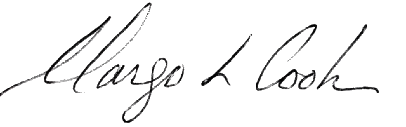 Margo L Cook